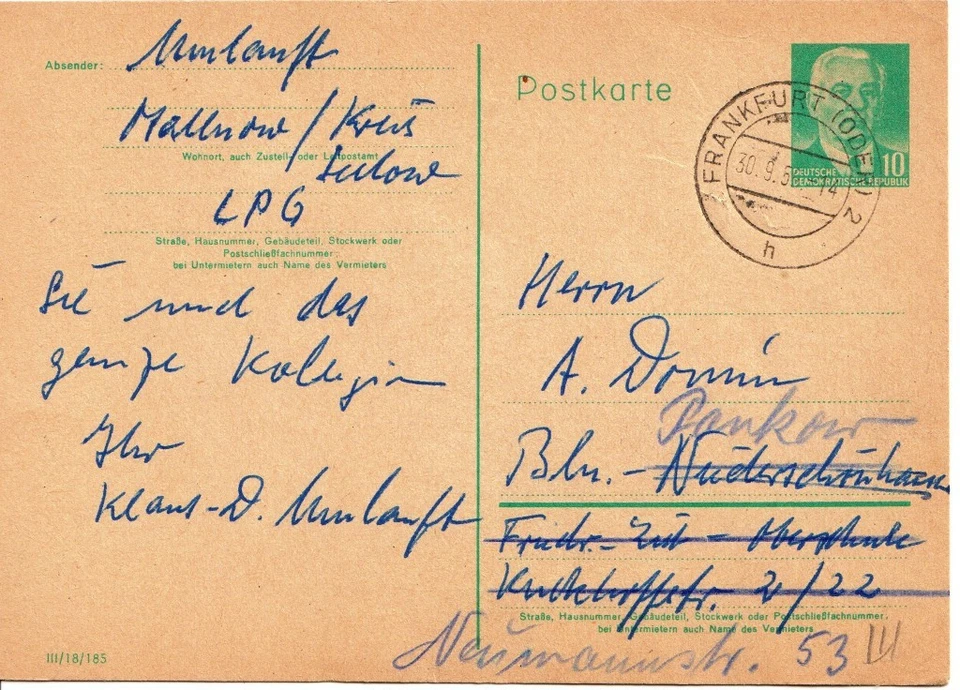 Absender: Umlauft
Mallnow / Kreis
Wohnort, auch Zustell- oder Leitpostamt
Seelow
LPG
Straße, Hausnummer, Gebäudeteil, Stockwerk oder
Postschließfachnummer;
bei Untermietern auch Name des Vermieters
Sie und das
ganze Kollegium
Ihr
Klaus-D. Umlauft
III/18/185
Postkarte
FRANKFURT (ODER) 2
30.9.5
14
h
DEUTSCHE
DEMOKRATISCHE REPUBLIK
10
Herrn
A. Domin
Pankow
Bln. - Niederschönhausen
Friedr.- - Oberschule
2/22
Straße, Hausnummer, Gebäudeteil, Stockwerk oder Postschließfachnummer;
bei Untermietern auch Name des Vermieters
Neumannstr. 53 III